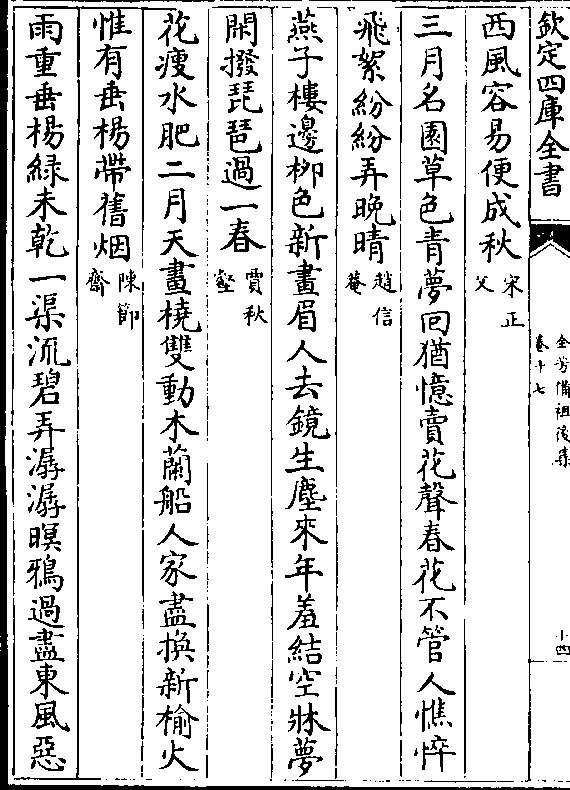 欽定四庫全書
全芳備祖後集
卷十七
十四
西風容易便成秋宋正父
三月名園草色青夢回猶憶賣花聲春花不管人憔悴
飛絮紛紛弄晚晴趙信菴
燕子樓邊栁色新畫眉人去鏡生塵來年羞結空牀夢
閑撥琵琶過一春賈秋壑
花瘦水肥二月天畫橈雙動木蘭船人家盡換新榆火
惟有垂楊帶舊烟陳節齋
雨重垂楊綠未乾一渠流碧弄潺潺暝鴉過盡東風惡